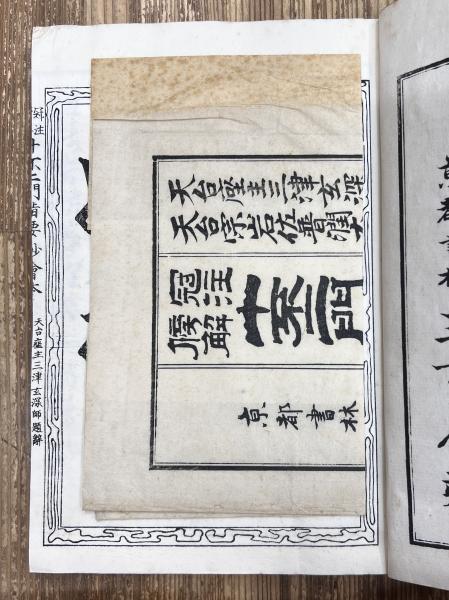 十不二門指要鈔會本
天台座主三津玄深師題辭
天台座主三津玄深
天台宗岩佐普潤
冠注
傍解
十不二門
京都書林
京都書林